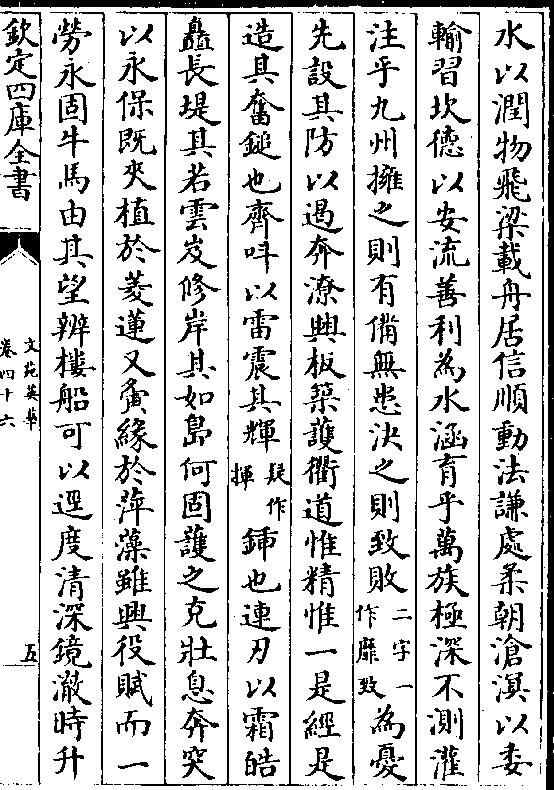 水以潤物飛梁載舟居信順動法謙處柔朝滄溟以委
輸習坎德以安流善利為水涵育乎萬族極深不測灌
注乎九州擁之則有備無患決之則致敗二字一作靡致為憂
先設其防以遏奔潦興板築護衢道惟精惟一是經是
造其奮鎚也齊呌以雷震其輝疑作揮鍤也連刃以霜皓
矗長堤其若雲岌修岸其如島何固護之克壯息奔突
以永保既夾植於菱蓮又夤緣於萍藻雖興役賦而一
勞永固牛馬由其望辨樓船可以逕度清深鏡澈時升
欽定四庫全書
文苑英華
卷四十六
五